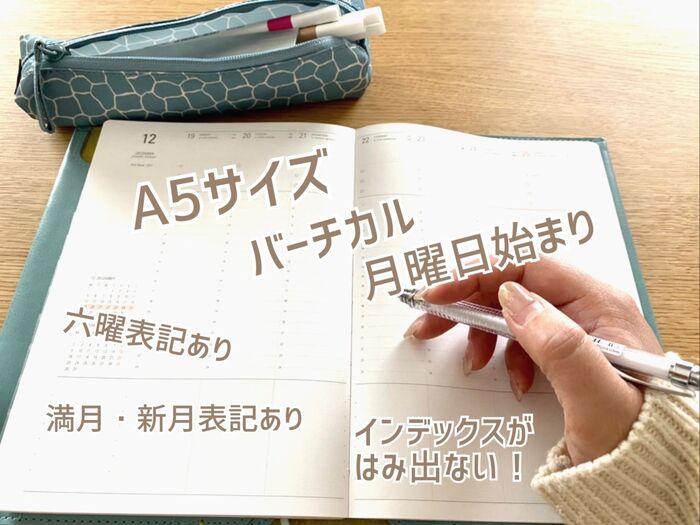 12
19
20
21
22
23
DECEMBER
A5サイズ
バーチカル
月曜日始まり
六曜表記あり
満月・新月表記あり
インデックスが
はみ出ない！